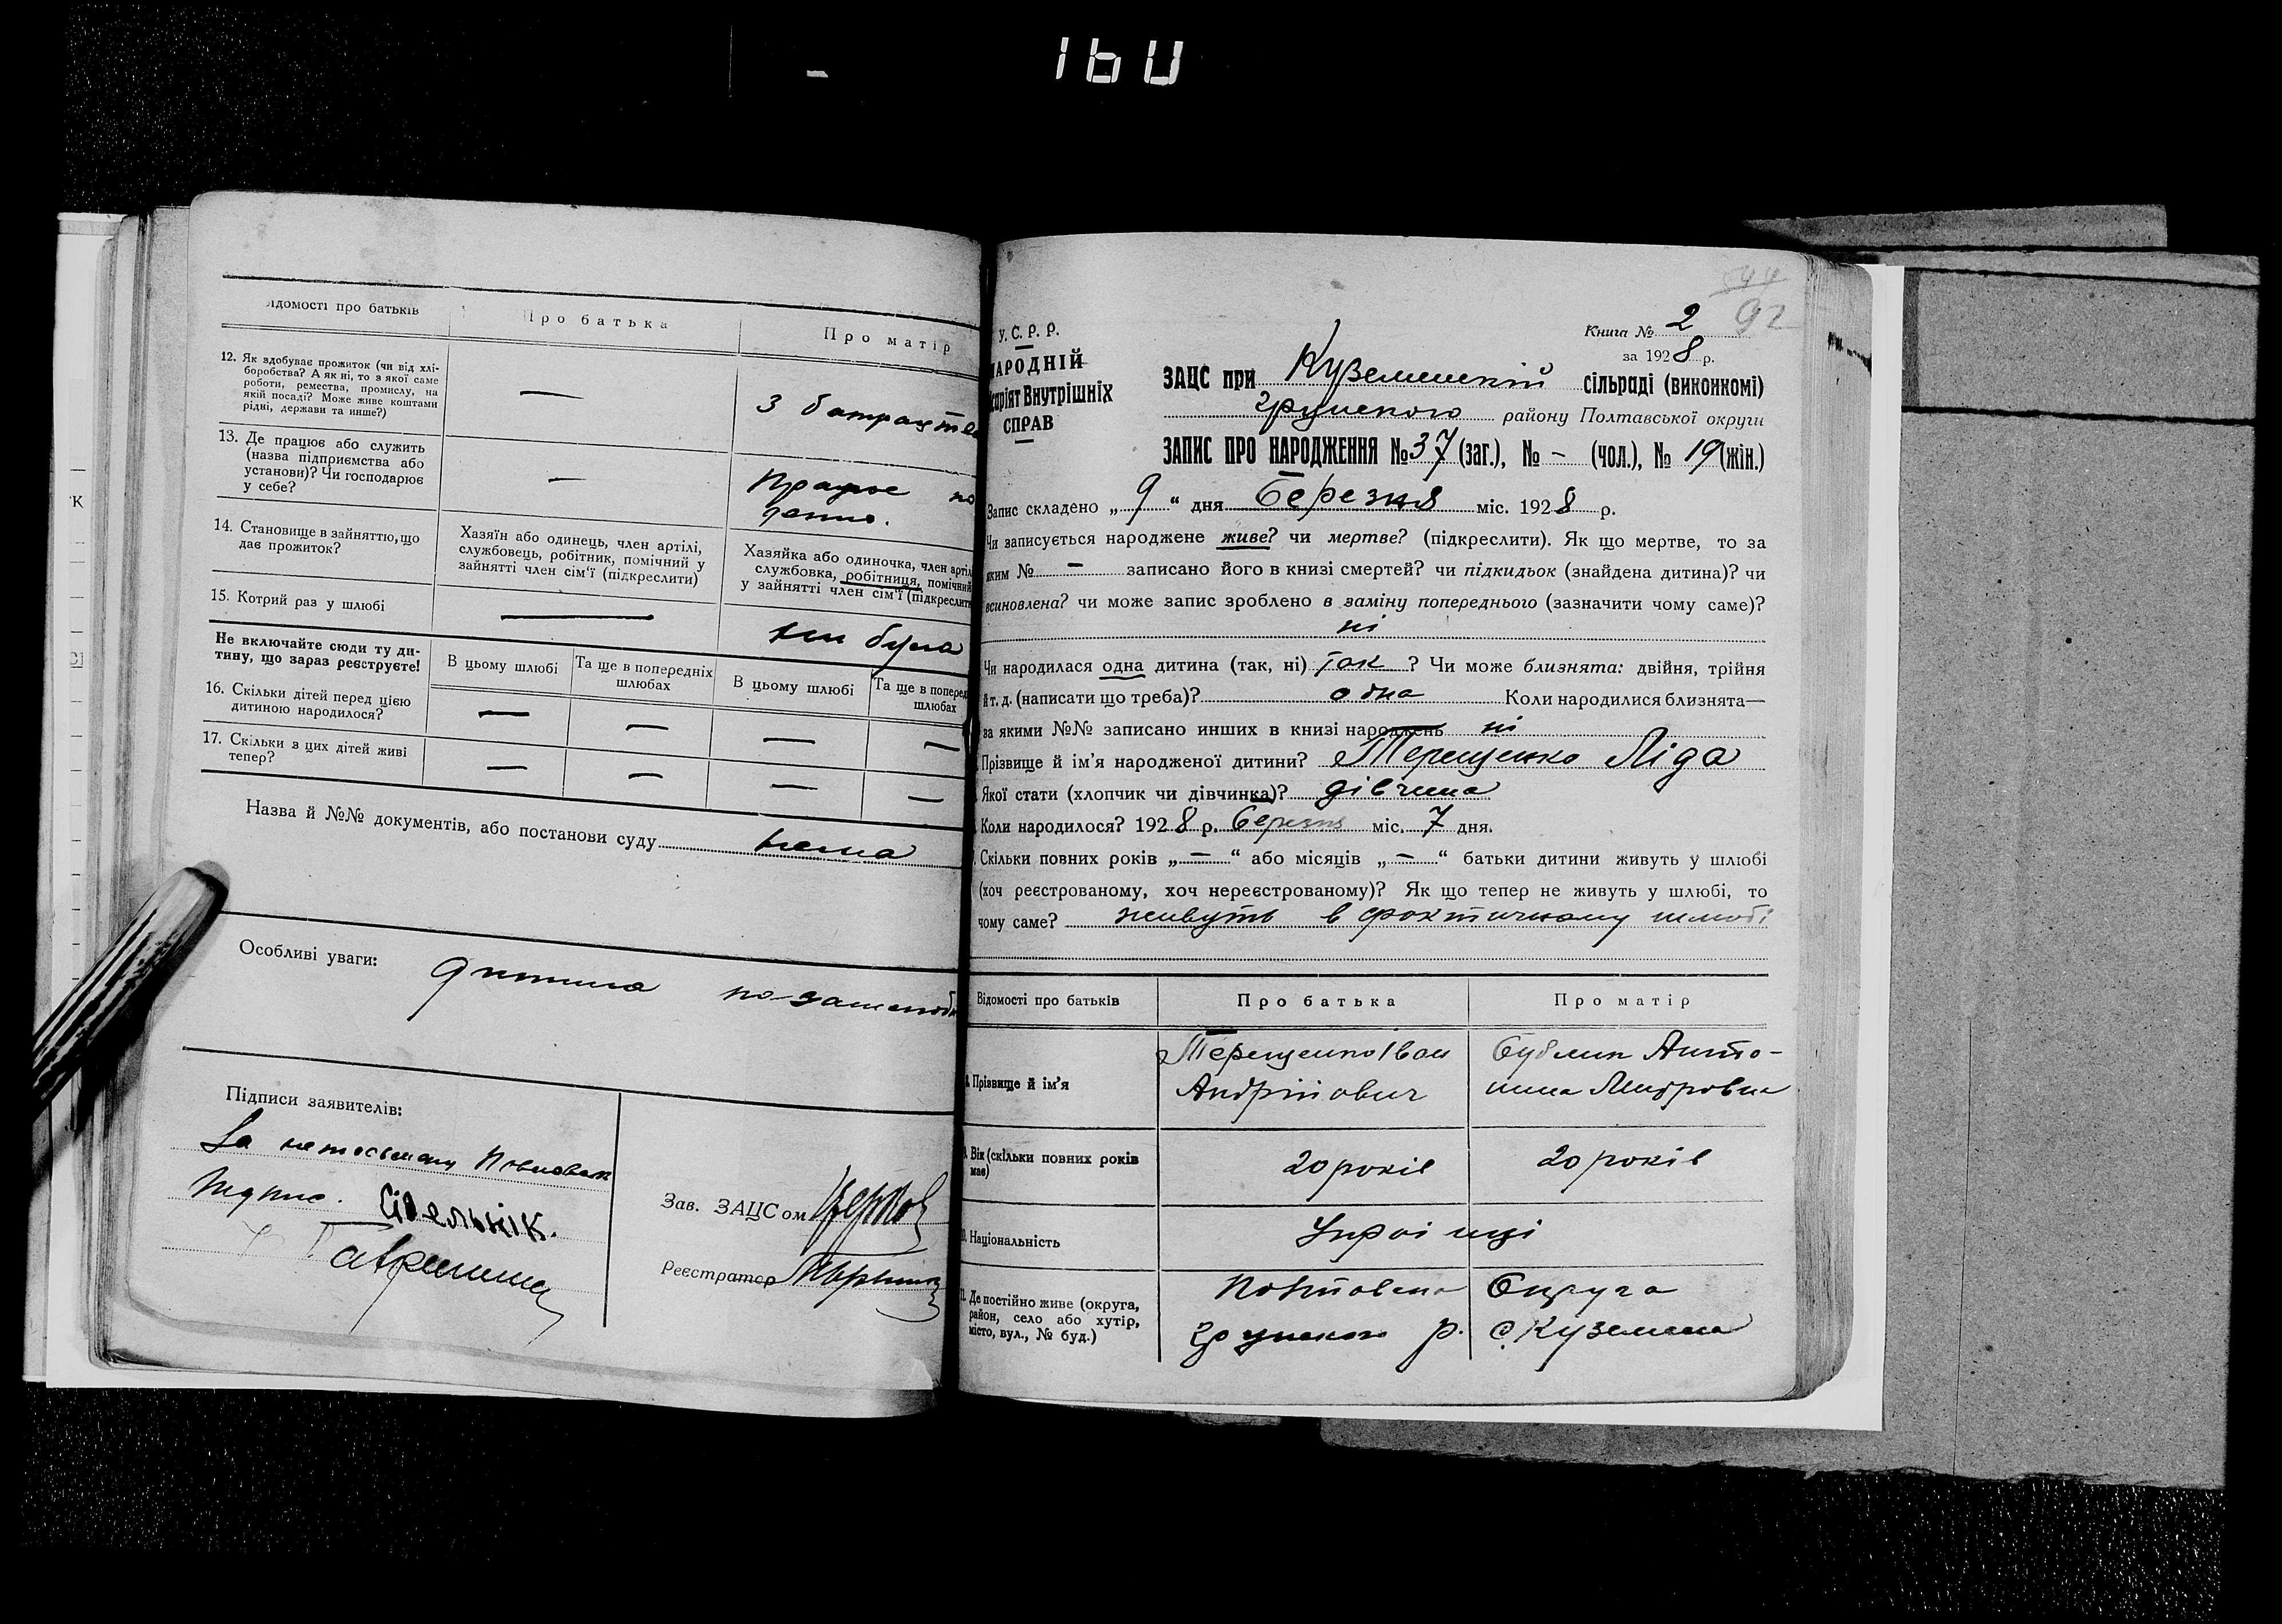 160
Відомості про батьків
Про батька
Про матір
12. Як здобуває прожиток (чи від хлі-
боробства? А як ні, то з якої саме
роботи, ремества, промислу, на
якій посаді? Може живе коштами
рідні, держави та инше?)
—
З батрацтва
13. Де працює або служить
(назва підприємства або
установи)? Чи господарює
у себе?
—
Працює по
денно.
14. Становище в зайняттю, що
дає прожиток?
Хазяїн або одинець, член артілі,
службовець, робітник, помічний у
зайнятті член сім'ї (підкреслити)
Хазяйка або одиночка, член артілі
службовка, робітниця, помічний
у зайнятті член сім'ї (підкреслити
15. Котрий раз у шлюбі
—
не була
Не включайте сюди ту ди-
тину, що зараз реєструєте!
В цьому шлюбі
Та ще в попередніх
шлюбах
В цьому шлюбі
Та ще в поперед
шлюбах
16. Скільки дітей перед цією
дитиною народилося?
— — — —
17. Скільки з цих дітей живі
тепер?
— — — —
Назва й №№ документів, або постанови суду нема
Особливі уваги: дитина позашлюбн
Підписи заявителів:
За неписьмену
Підпис. Сідельнік.
Зав. ЗАЦСом
Реєстратор
У.С.Р.Р.
НАРОДНІЙ
саріят Внутрішніх
СПРАВ
92
Книга № 2
за 1928 р.
ЗАЦС при Куземенській сільраді (виконкомі)
Грунського району Полтавської округи
ЗАПИС ПРО НАРОДЖЕННЯ № 37 (заг.), № - (чол.), № 19 (жін.)
Запис складено „ 9 “ дня Березня міс. 1928 р.
Чи записується народжене живе? чи мертве? (підкреслити). Як що мертве, то за
яким № — записано його в книзі смертей? чи підкидьок (знайдена дитина)? чи
всиновлена? чи може запис зроблено в заміну попереднього (зазначити чому саме)?
ні
Чи народилася одна дитина (так, ні) так ? Чи може близнята: двійня, трійня
й т. д. (написати що треба)? одна Коли народилися близнята—
за якими №№ записано инших в книзі народжень ні
Прізвище й ім'я народженої дитини? Терещенко Ліда
Якої стати (хлопчик чи дівчинка)? дівчина
Коли народилося? 1928 р. Березня міс. 7 дня.
Скільки повних років „ — “ або місяців „ — “ батьки дитини живуть у шлюбі
(хоч реєстрованому, хоч нереєстрованому)? Як що тепер не живуть у шлюбі, то
чому саме? живуть в фактичному шлюбі
Відомості про батьків
Про батька
Про матір
Прізвище й ім'я
Терещенко Іван
Андрійович
Бублик Анто-
нина
Вік (скільки повних років
має)
20 років
20 років
Національність
Україңці
Де постійно живе (округа,
район, село або хутір,
місто, вул., № буд.)
Полтавська Округа
Грунського р. с. Куземена